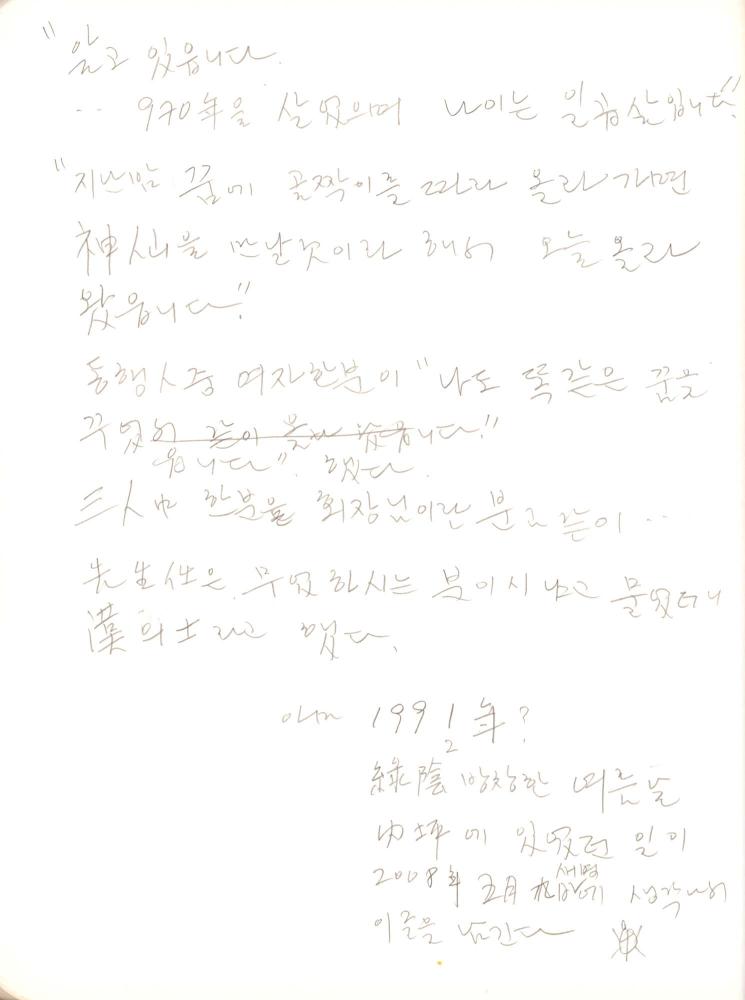 "알고 있읍니다.
·· 970年을 살았으며 나이는 일곱살입니다"
"지난밤 꿈에 골짝이를 따라 올라가면
神仙을 만날것이라 해서 오늘 올라
왔읍니다"
동행人중 여자한분이 "나도 똑같은 꿈을
꾸었어 같이 올라 왔읍니다"
읍니다" 했다.
三人中 한분을 회장님이란 분고 같이 ··
先生任은 무엇하시는 분이시냐고 물었더니
漢의士라고 했다.
아마 1991年?
2
綠陰 방창한 여름날
內坪에 있었던 일이
2008年 五月 九日 새벽에 생각나서
이줄을 남긴다